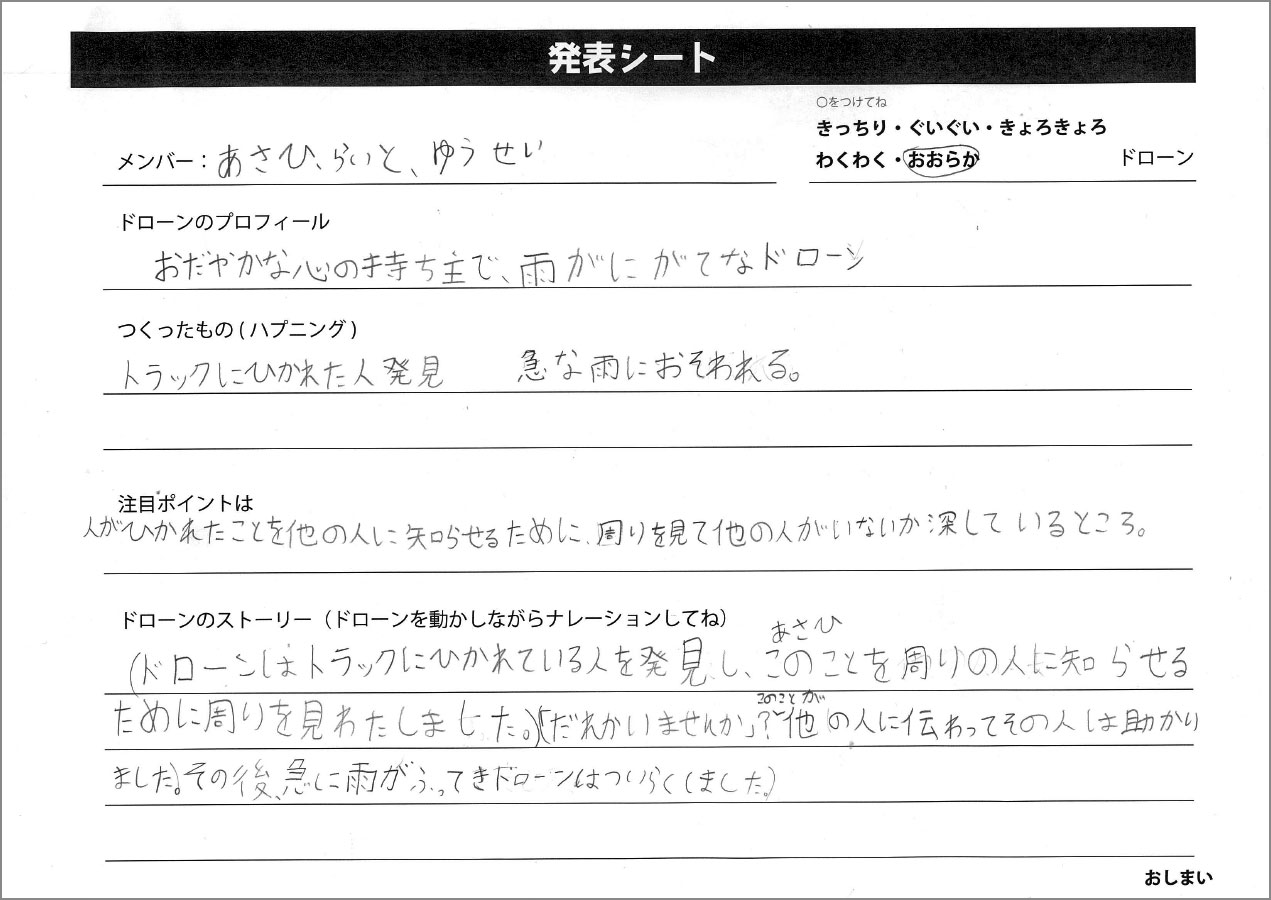 発表シート
○をつけてね
きっちり・ぐいぐい・きょろきょろ
わくわく・おおらか ドローン
メンバー：あさひ、らいと、ゆうせい
ドローンのプロフィール
おだやかな心の持ち主で、雨がにがてなドローン
つくったもの(ハプニング)
トラックにひかれた人発見 急な雨におそわれる。
注目ポイントは
人がひかれたことを他の人に知らせるために、周りを見て他の人がいないか深しているところ。
ドローンのストーリー（ドローンを動かしながらナレーションしてね）
あさひ
(ドローンはトラックにひかれている人を発見し、このことを周りの人に知らせる
このことが
ために周りを見わたしました。)(「だれかいませんか」?他の人に伝わってその人は助かり
ました。その後、急に雨がふってきドローンはついらくしました。)
おしまい